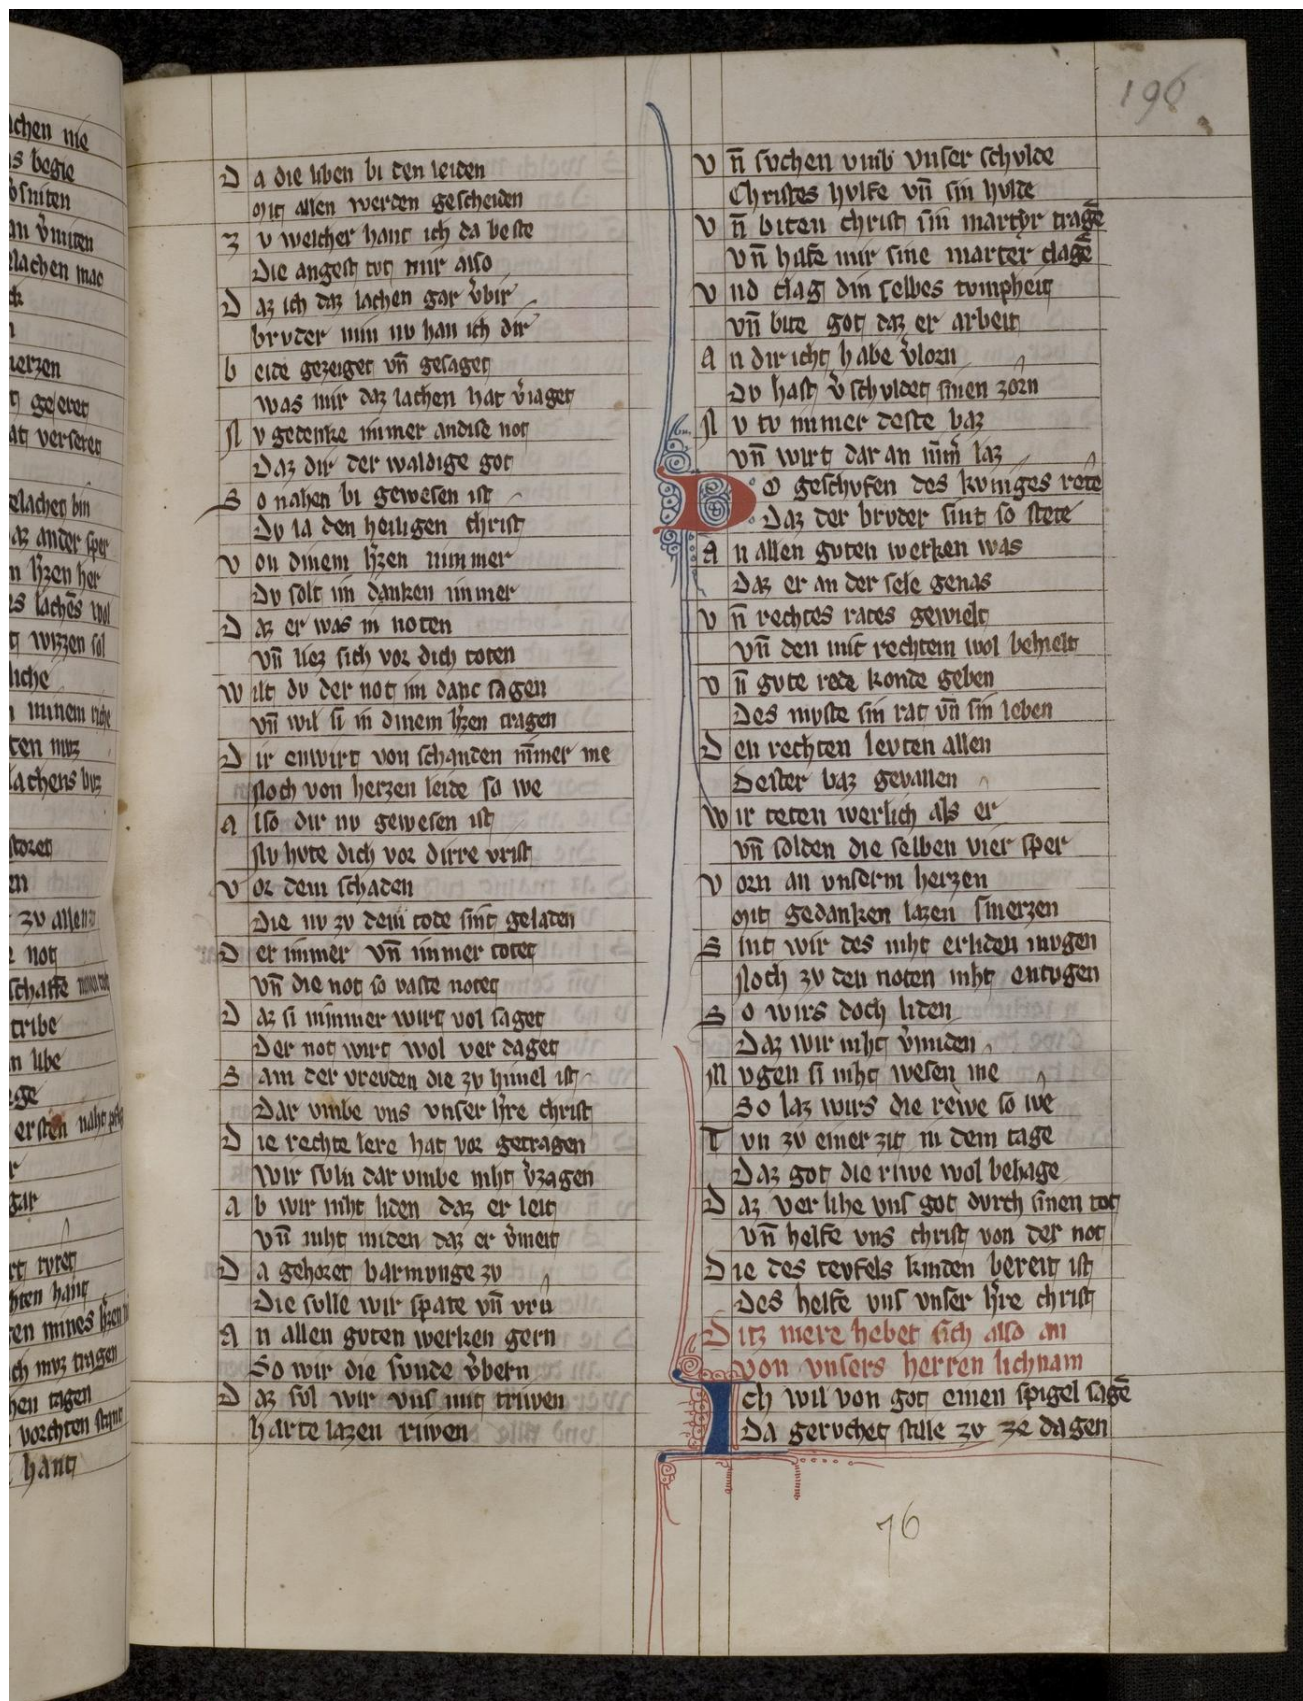 chen nie
s begie
v̉sniten
an v̉miten
lachen mac
n
herzen
ꝗ geseret
at verseret
elachet bin
az ander sper
n hꝰzen her
s lachēs wol
ꝗ wizzen sol
liche
n minem riche
ten muz
lachens buz
storet
en
zv allen
e not
schaffe
tribe
n libe
ge
ersten naht
r
gar
rt tvret
hten hant
en mines hꝰzen
ch mvz tragen
hen tagen
vorchten stunt
hant
Da die liben bi den leiden
mit allen werden gescheiden
Zv welcher hant ich da beste
Die angest tvt mir also
Daz ich daz lachen gar v̉bir
brvder min nv han ich dir
beide gezeiget vn̄ gesaget
was mir daz lachen hat v̉iaget
Nv gedenke immer andise not
Daz dir der waldige got
So nahen bi gewesen ist
Dv la den heiligen christ
von dinem hꝰzen nimmer
Dv solt im danken immer
Daz er was in noten
vn̄ liez sich vor dich toten
wilt dv der not im danc sagen
vn̄ wil si in dinem hꝰzen tragen
Dir enwirt von schanden nīmer me
Noch von herzen leide so we
also dir nv gewesen ist
Nv hvte dich vor dirre vrist
vor dem schaden
Die nv zv dem tode sint geladen
Der immer vn̄ immer totet
vn̄ die not so vaste notet
Daz si nimmer wirt vol saget
Der not wirt wol verdaget
Sam der vrevden die zv himel ist
Dar vmbe vns vnser hꝰre christ
Die rechte lere hat vor getragen
Wir svln dar vmbe niht v̉zagen
ab wir niht liden daz er leit
vn̄ niht miden daz er v̉meit
Da gehoret barmvnge zv
Die svlle wir spate vn̄ vrv
An allen gvten werken gern
So wir die svnde v̉bern
Daz sol wir vns mit triwen
harte lazen riwen
196
vn̄ svchen vmb vnser schvlde
Christes hvlfe vn̄ sin hvlde
vn̄ biten christ sin martyr tragē
vn̄ hilfe mir sine marter clagē
vnd clag din selbes tvmpheit
vn̄ bite got daz er arbeit
An dir icht habe v̉lorn
Dv hast v̉schvldet sinen zorn
Nv tv immer deste baz
vn̄ wirt dar an nīm̉ laz
Do geschvfen des kvniges rete
Daz der brvder sint so stete
An allen gvten werken was
Daz er an der sele genas
vn̄ rechtes rates gewielt
vn̄ den mit rechtem wol behielt
vn̄ gvte rede konde geben
Des mvste sin rat vn̄ sin leben
Den rechten levten allen
Dester baz gevallen
Wir teten werlich als er
vn̄ solden die selben vier sper
vorn an vnserm herzen
mit gedanken lazen smerzen
Sint wir des niht erliden mvgen
Noch zv den noten niht entvgen
So wirs doch liden
Daz wir niht v̉miden
Mvgen si niht wesen me
So laz wirs die rewe so we
Tvn zv einer zit in dem tage
Daz got die riwe wol behage
Daz verlihe vns got dvrch sinen tot
vn̄ helfe vns christ von der not
Die des tevfels kinden bereit ist
Des helfe vns vnser hꝰre christ
Ditz mere hebet sich also an
von vnsers herren lichnam
Ich wil von got einen spigel sagē
Da gervchet stille zv ze dagen
76